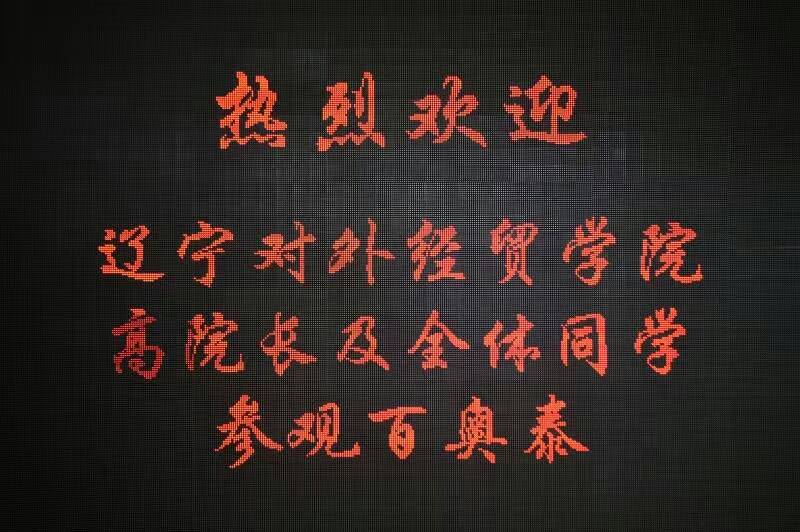 热烈欢迎
辽宁对外经贸学院
高院长及全体同学
参观百奥泰